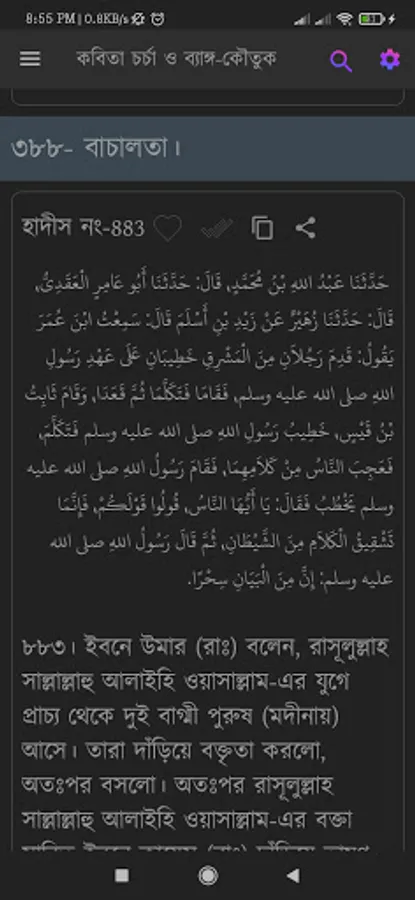 8:55 PM | 0.8KB/s
কবিতা চর্চা ও ব্যাঙ্গ-কৌতুক
৩৮৮- বাচালতা।
হাদীস নং-883
حَدَّثَنَا عَبْدُ اللهِ بْنُ مُحَمَّدٍ، قَالَ: حَدَّثَنَا أَبُو عَامِرٍ الْعَقَدِيُّ،
قَالَ: حَدَّثَنَا زُهَيْرٌ عَنْ زَيْدِ بْنِ أَسْلَمَ قَالَ: سَمِعْتُ ابْنَ عُمَرَ
يَقُولُ: قَدِمَ رَجُلاَنِ مِنَ الْمَشْرِقِ خَطِيبَانِ عَلَى عَهْدِ رَسُولِ
اللهِ صلى الله عليه وسلم، فَقَامَا فَتَكَلَّمَا ثُمَّ قَعَدَا، وَقَامَ ثَابِتُ
بْنُ قَيْسٍ، خَطِيبُ رَسُولِ اللهِ صلى الله عليه وسلم فَتَكَلَّمَ،
فَعَجِبَ النَّاسُ مِنْ كَلاَمِهِمَا، فَقَامَ رَسُولُ اللهِ صلى الله عليه
وسلم يَخْطُبُ فَقَالَ: يَا أَيُّهَا النَّاسُ، قُولُوا قَوْلَكُمْ، فَإِنَّمَا
تَشْقِيقُ الْكَلاَمِ مِنَ الشَّيْطَانِ، ثُمَّ قَالَ رَسُولُ اللهِ صلى الله
عليه وسلم: إِنَّ مِنَ الْبَيَانِ سِحْرًا.
৮৮৩। ইবনে উমার (রাঃ) বলেন, রাসূলুল্লাহ
সাল্লাল্লাহু আলাইহি ওয়াসাল্লাম-এর যুগে
প্রাচ্য থেকে দুই বাগ্মী পুরুষ (মদীনায়)
আসে। তারা দাঁড়িয়ে বক্তৃতা করলো,
অতঃপর বসলো। অতঃপর রাসূলুল্লাহ
সাল্লাল্লাহু আলাইহি ওয়াসাল্লাম-এর বক্তা